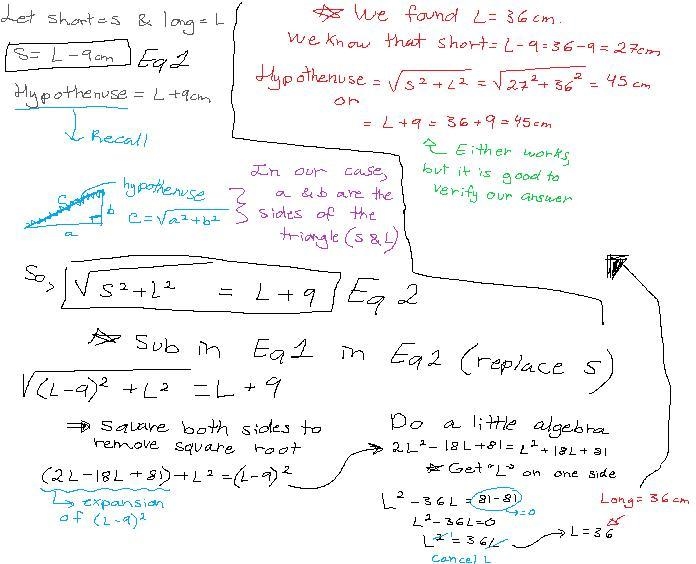 Let short=s & long=L
S= L-9cm Eq1
Hypothenuse = L+9cm
Recall
S
hypothenuse
c=√a²+b²
b
a
In our case,
a & b are the
sides of the
triangle (s & L)
So,
√S²+L² = L+9 Eq 2
Sub in Eq1 in Eq2 (replace s)
√(L-9)² + L² = L + 9
⇒ Square both sides to
remove square root
(2L-18L+81)+L²=(L-9)²
↳ expansion
of (L-9)²
Do a little algebra
2L²-18L+81=L²+18L+81
Get "L" on one side
L²-36L=81-81
→=0
L²-36L=0
L²=36L
cancel L
→L=36
Long=36cm
We found L=36cm.
We know that short=L-9=36-9=27cm
Hypothenuse = √S²+L² = √27²+36² = 45cm
or
= L+9 = 36+9=45cm
Either works,
but it is good to
verify our answer